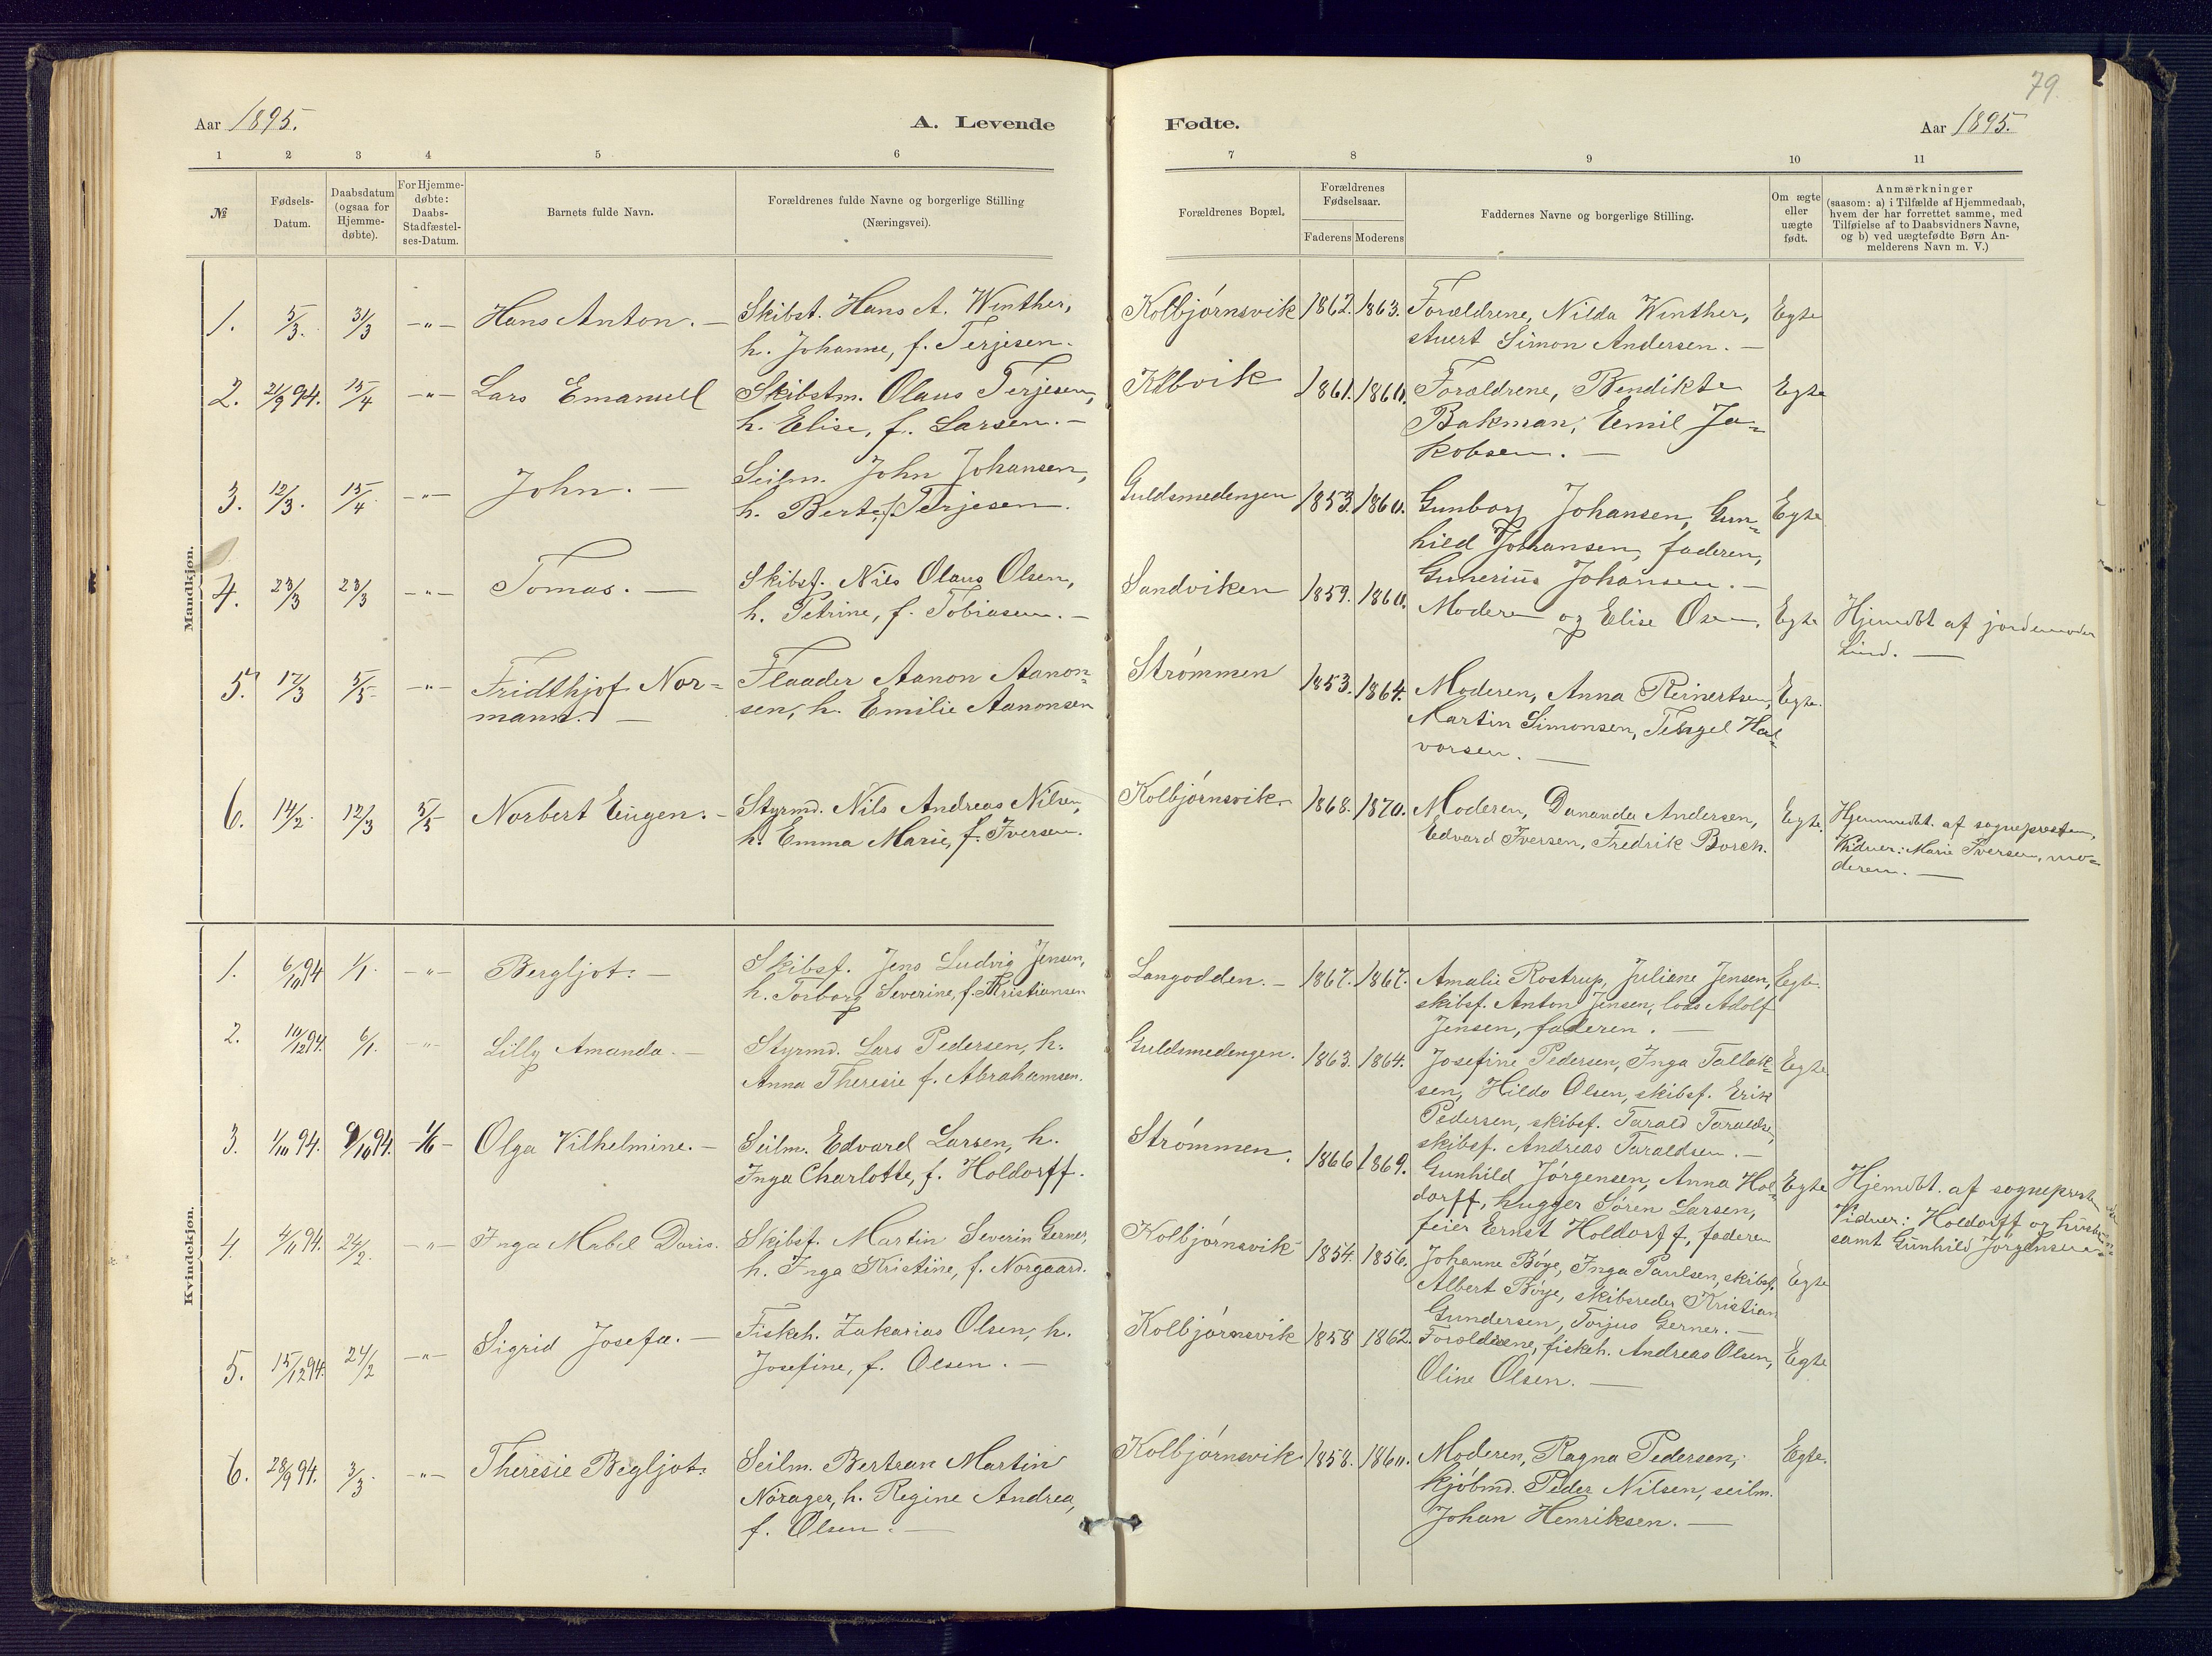 79.
Aar 1895.
A. Levende
Fødte.
Aar 1895.
1 2 3 4 5 6
7 8 9 10 11
№
Fødsels-
Datum.
Daabsdatum
(ogsaa for
Hjemme-
døbte).
For Hjemme-
døbte:
Daabs-
Stadfæstel-
ses-Datum.
Barnets fulde Navn.
Forældrenes fulde Navne og borgerlige Stilling
(Næringsvei).
Forældrenes Bopæl.
Forældrenes
Fødselsaar.
Faderens Moderens
Faddernes Navne og borgerlige Stilling.
Om ægte
eller
uægte
født.
Anmærkninger
(saasom: a) i Tilfælde af Hjemmedaab,
hvem der har forrettet samme, med
Tilføielse af to Daabsvidners Navne,
og b) ved uægtefødte Børn An-
melderens Navn m. V.)
Mandkjøn.
1. 5/3. 31/3 -"- Hans Anton. - Skibst. Hans A. Winther,
h. Johanne, f. Terjesen.
Kolbjørnsvik 1862. 1863. Forældrene, Nilda Winther, Egte
stuert Simon Andersen. -
2. 21/9 94. 15/4 -"- Lars Emanuel Skibstm. Olaus Terjesen,
h. Elise, f. Larsen. -
Kilbvik 1861. 1860. Forældrene, Bendikte Egte
Bakman, Emil Ja-
kobsen. -
3. 12/3. 15/4. -"- John. - Seilm. John Johansen,
h. Berte, f. Terjesen.
Guldsmedengen 1853. 1860. Gunborg Johansen, Gun- Egte
hild Johansen, faderen,
Gunerius Johansen. -
4. 23/3 23/3 -"- Tomas. - Skibsf. Nils Olaus Olsen,
h. Petrine, f. Tobiasen. -
Sandviken 1859. 1860. Moderen og Elise Osen. Egte Hjemdbt af jordemoder
Lind. -
5. 17/3 5/5 -"- Fridthjof Nor-
mann. - Flaader Aanon Aanon-
sen, h. Emilie Aanonsen
Strømmen 1853. 1864. Moderen, Anna Reinertsen, Egte.
Martin Simonsen, Tergel Hal-
vorsen. -
6. 14/2. 12/3 5/5 Norbert Eugen. - Styrmd. Nils Andreas Nilsen,
h. Emma Marie, f. Iversen.
Kolbjørnsvik 1868. 1870. Moderen, Dananda Andersen, Egte. Hjemmedbt. af sognepresten.
Edvard Iversen, Fredrik Borch. Vidner: Marie Iversen, mo-
deren. -
Kvindekjøn.
1. 6/11 94 1/1. -"- Bergljot. - Skibsf. Jens Ludvig Jensen,
h. Torborg Severine, f. Kristiansen
Langodden. - 1867. 1867. Amalie Rostrup, Juliane Jensen, Egte.
skibsf. Anton Jensen, lods Adolf
Jensen, faderen. -
2. 10/12 94. 6/1. -"- Lilly Amanda. - Styrmd. Lars Pedersen, h.
Anna Theresie f. Abrahamsen.
Guldsmedengen. 1863. 1864. Josefine Pedersen, Inga Tallak- Egte.
sen, Hilda Olsen, skibsf. Erik
Pedersen, skibsf. Tarald Taraldse,
skibsf. Andreas Taraldsen. -
3. 1/10 94. 9/10 94. 1/6 - Olga Vilhelmine. - Seilm. Edvard Larsen, h.
Inga Charlotte, f. Holdorff.
Strømmen. 1866 1869. Gunhild Jørgensen, Anna Hol- Egte Hjemdbt. af sogneprest
dorff, hugger Søren Larsen, Vidner: Holdorff og hustru
feier Ernst Holdorff, faderen samt Gunhild Jørgensen
4. 4/11 94. 24/2. -"- Inga Mabel Doris. Skibsf. Martin Severin Gerner,
h. Inga Kristine, f. Norgaard.
Kolbjørnsvik 1854. 1856. Johanne Bøye, Inga Paulsen, skibsf. Egte
Albert Bøye, skibsreder Kristian
Gundersen, Torjus Gerner. -
5. 15/12 94. 24/2 -"- Sigrid Josefa. - Fiskeh. Zakarias Olsen, h.
Josefine, f. Olsen. -
Kolbjørnsvik 1858 1862. Forældrene, fiskeh. Andreas Olsen, Egte
Oline Olsen. -
6. 28/9 94. 3/3. -"- Theresie Begljot. Seilm. Bertran Martin
Nørager, h. Regine Andrea,
f. Olsen. -
Kolbjørnsvik 1858. 1860. Moderen, Ragna Pedersen, Egte.
kjøbmd. Peder Nilsen, seilm.
Johan Henriksen. -